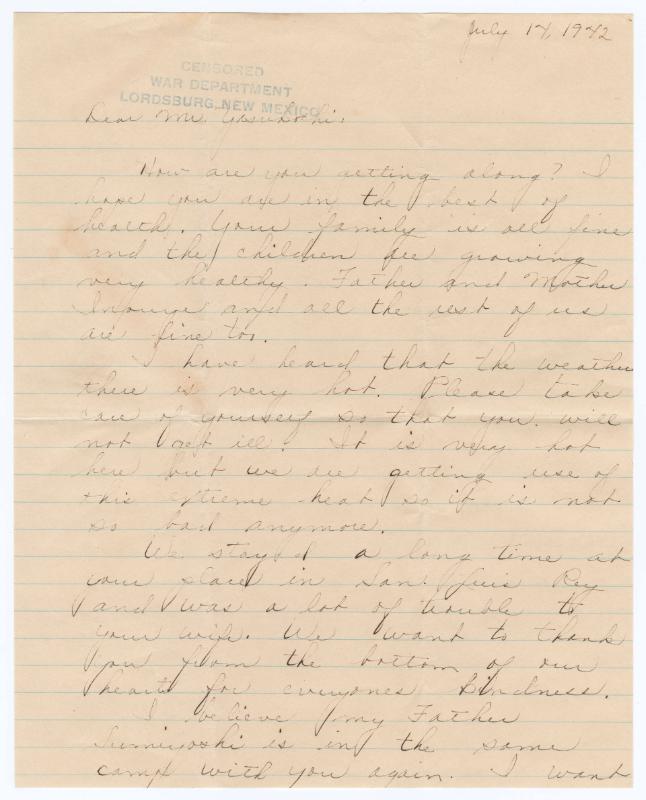 July 14, 1942
CENSORED
WAR DEPARTMENT
LORDSBURG, NEW MEXICO
Dear Mr.
How are you getting along? I
hope you are in the best of
health. Your family is all fine
and the children are growing
very healthy. Father and Mother
and all the rest of us
are fine too.
I have heard that the weather
there is very hot. Please take
care of yourself so that you will
not get ill. It is very hot
here but we are getting use of
this extreme heat so it is not
so bad anymore.
We stayed a long time at
your place in San Luis Rey
and was a lot of trouble to
your wife. We want to thank
you from the bottom of our
heart for everyones kindness.
I believe my Father
Sumiyoshi is in the same
camp with you again. I want